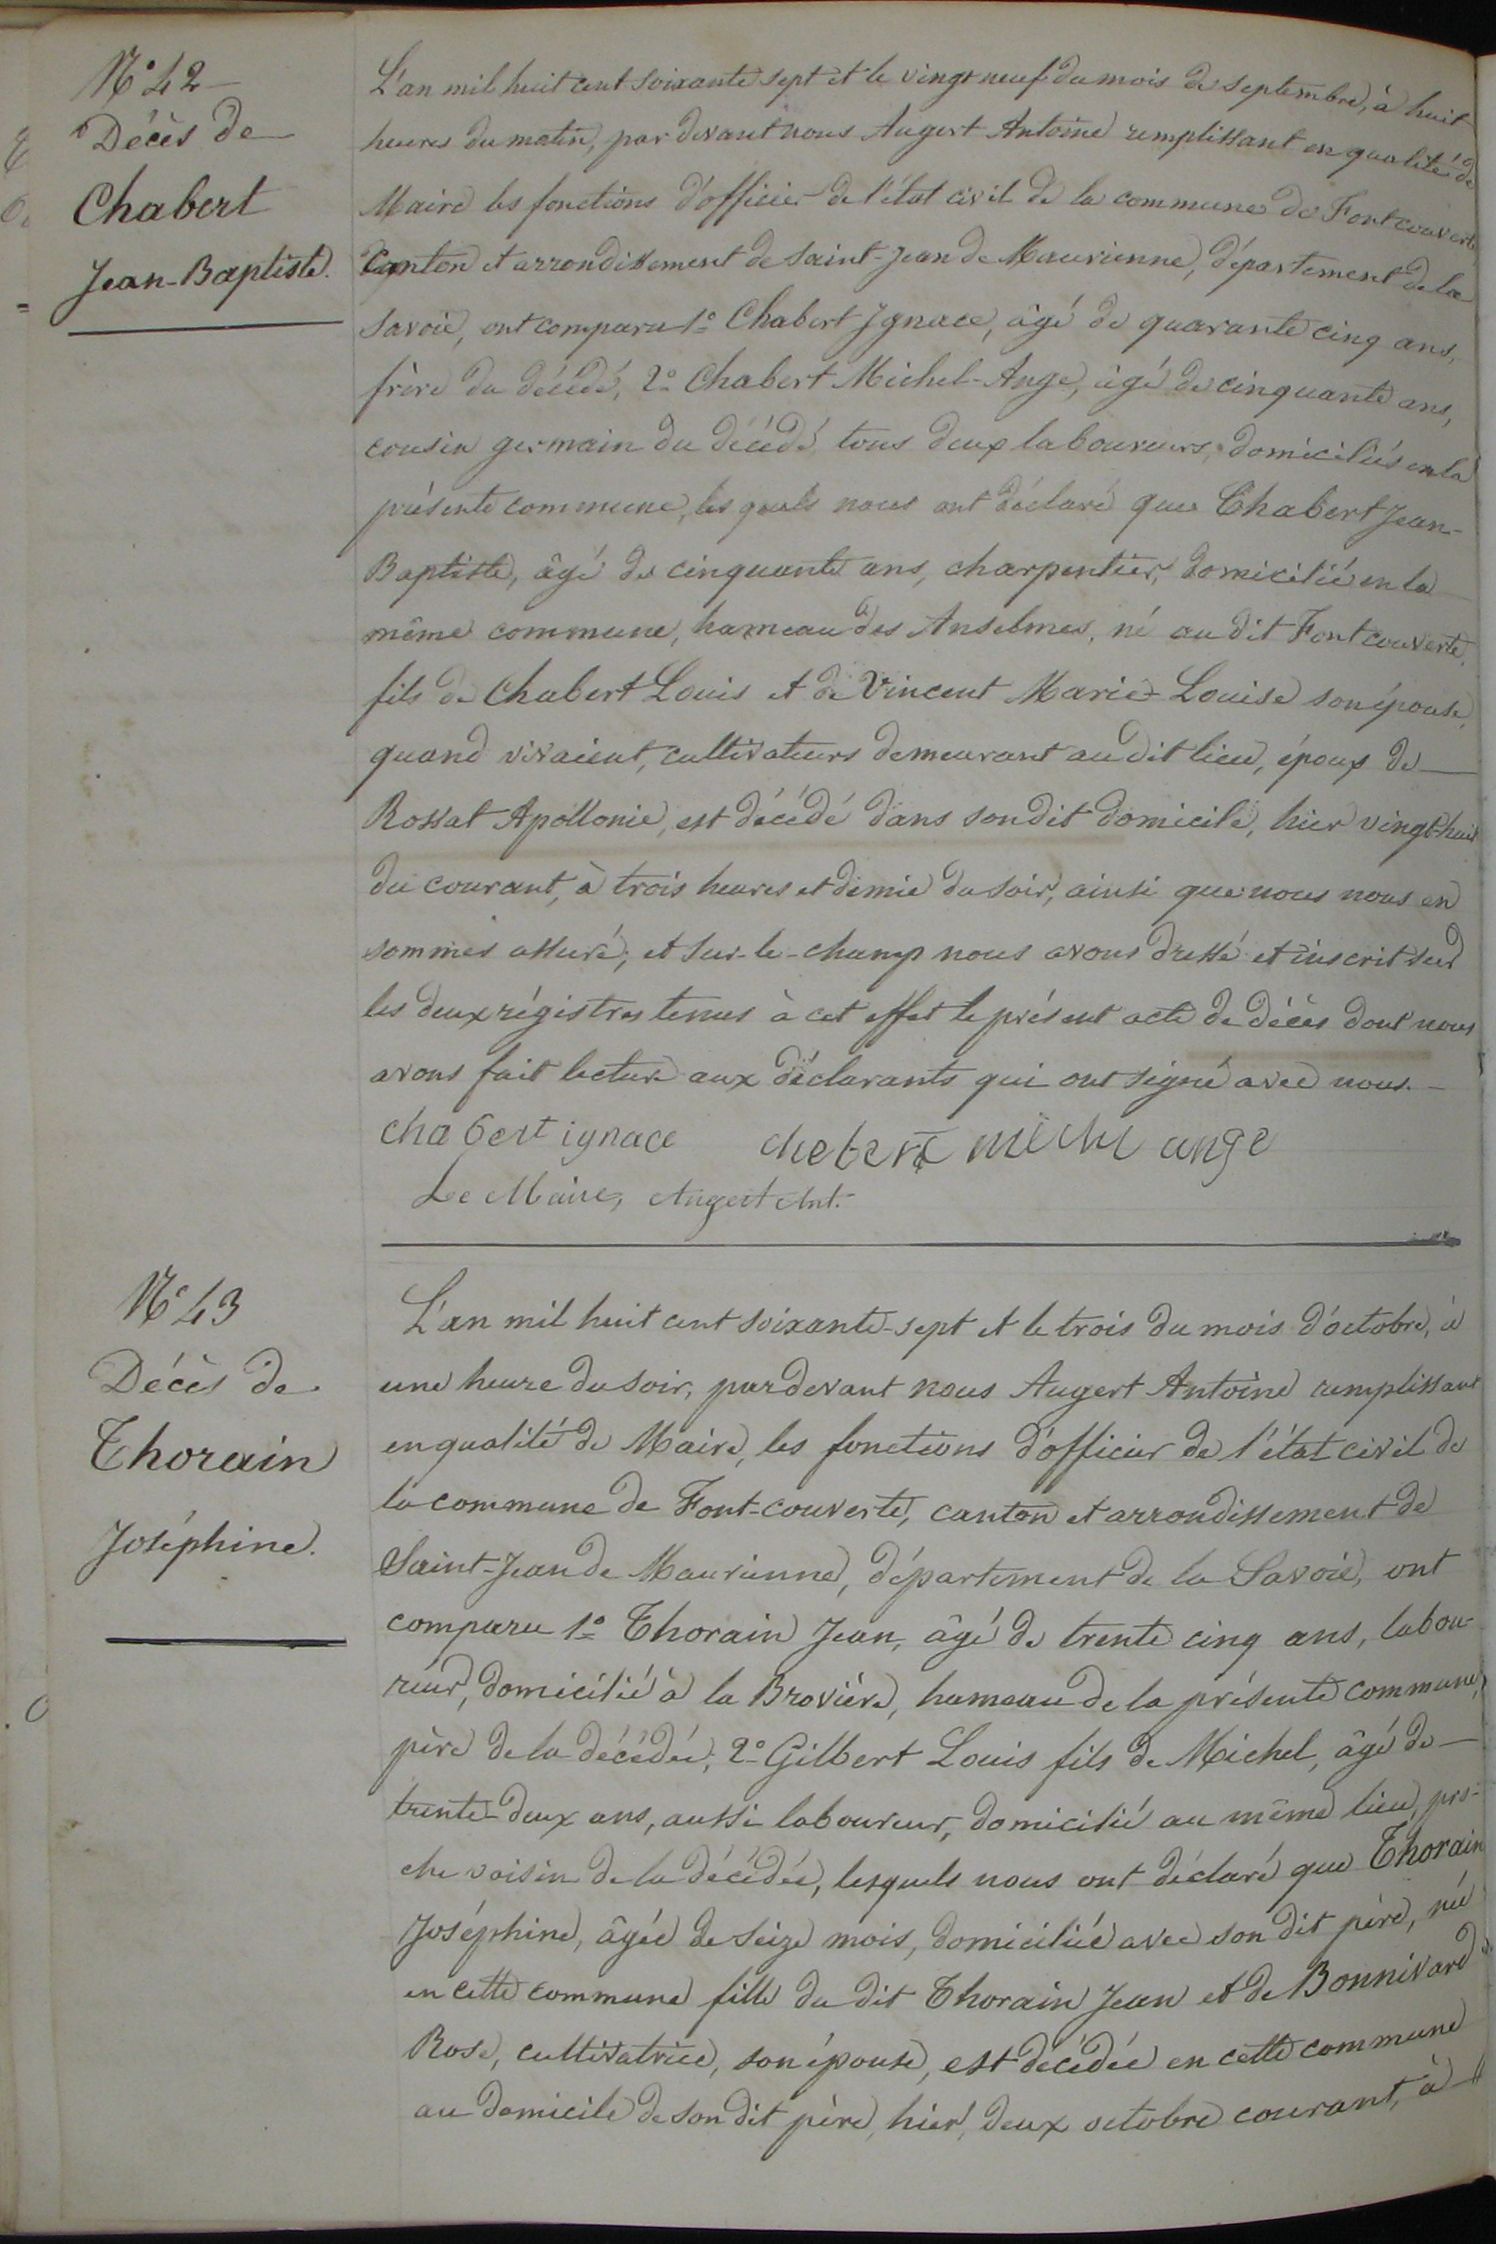 N° 42
Décès de
Chabert
Jean-Baptiste.
L'an mil huit cent soixante sept et le vingt neuf du mois de septembre, à huit
heures du matin, par devant nous Augert Antoine remplissant en qualité de
Maire les fonctions d'officier de l'état civil de la commune de Fontcouverte,
Canton et arrondissement de Saint-Jean de Maurienne, département de la
Savoie, ont comparu 1° Chabert Ignace, âgé de quarante cinq ans,
frère du décédé, 2° Chabert Michel-Ange, âgé de cinquante ans,
cousin germain du décédé tous deux laboureurs, domiciliés en la
présente commune, les quels nous ont déclaré que Chabert Jean-
Baptiste, âgé de cinquante ans, charpentier, domicilié en la
même commune, hameau des Anselmes, né au dit Fontcouverte,
fils de Chabert Louis et de Vincent Marie-Louise son épouse,
quand vivaient, cultivateurs demeurant au dit lieu, époux de
Rossat Apollonie, est décédé dans son dit domicile, hier vingt-huit
du courant, à trois heures et demie du soir, ainsi que nous nous en
sommes assuré, et sur-le-champ nous avons dressé et inscrit sur
les deux régistres tenus à cet effet le présent acte de décès dont nous
avons fait lecture aux déclarants qui ont signé avec nous.
chabert ignace chebert miche ange
Le Maire, Augert Ant.
N° 43
Décès de
Thorain
Joséphine.
L'an mil huit cent soixante-sept et le trois du mois d'octobre, à
une heure du soir, pardevant nous Augert Antoine remplissant
en qualité de Maire, les fonctions d'officier de l'état civil de
la commune de Font-couverte, canton et arrondissement de
Saint-Jean de Maurienne, département de la Savoie, ont
comparu 1° Thorain Jean, âgé de trente cinq ans, labou-
reur, domicilié à la Brovière, hameau de la présente commune,
père de la décédée, 2° Gilbert Louis fils de Michel, âgé de
trente-deux ans, aussi laboureur, domicilié au même lieu, pro-
che voisin de la décédée, lesquels nous ont déclaré que Thorain
Joséphine, âgée de seize mois, domiciliée avec son dit père, née
en cette commune fille du dit Thorain Jean et de Bonnivard
Rose, cultivatrice, son épouse, est décédée en cette commune
au domicile de son dit père, hier, deux octobre courant, à